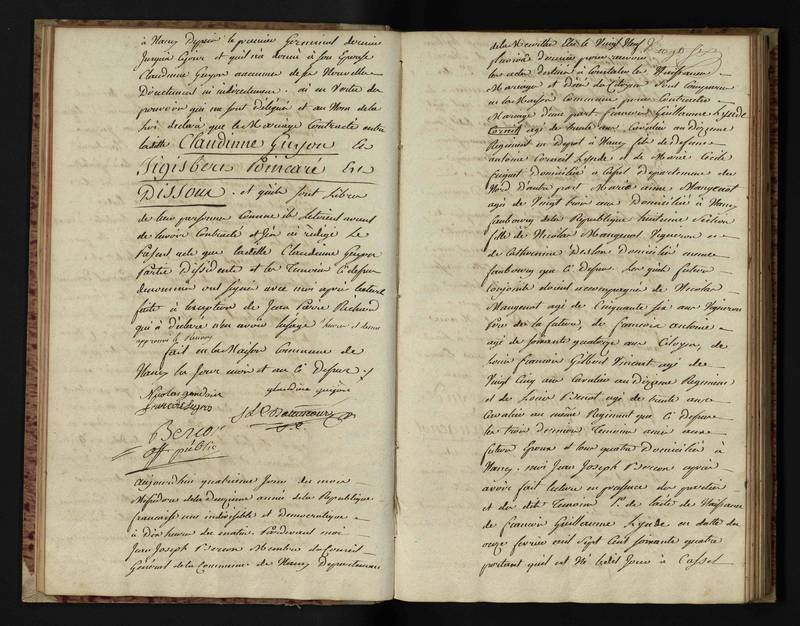 à Nancy Depuis le premier Germinal dernier
jusqu'à ce jour et qu'il n'a donné à son Epouse
Claudinne Guyon aucunne de ses Nouvelles
Directement ni indirectement. ai en Vertu des
pouvoirs qui me sont délégués et au Nom de la
Loi declaré que le Mariage Contracté entre
ladite Claudinne Guyon Et
Sigisbert Poincaré Est
Dissout. et qu'ils sont Libres
de leurs personnes Comme ils Letoient avant
de lavoir Contracté et j'en ai redigé Le
Présent acte que ladite Claudinne Guyon
partie Dissidente et les Temoins Ci dessus
denommés ont signés avec moi après lecture
faite à lexception de Jean Pierre Richard
qui à déclaré n'en avoir lusage
approuvé
fait en la Maison Commune de
Nancy les Jour mois et an Ci Dessus
glaudine guion
Berco
off public
aujourdhui quatrieme Jour du mois
Messidor de la Deuxieme année de la Republique
française une indivisible et Democratique
à Dix heures du matin. Pardevant moi
Jean Joseph Bercon Membre du Conseil
Général de la Commune de Nancy Departement
de la Meurthe Elu le Vingt Neuf
pluviose dernier pour recevoir
les actes destinés à Constater les Naissances
Mariages et Décès des Citoyens Sont Comparus
en la Maison Commune pour Contracter
Mariage d'une part françois Guillaume Lysde
Corneil agé de trente ans Cavalier au Dixieme
Regiment en Depot à Nancy fils de Defunt
antoine Corneil Lysde et de Marie Cecile
Domicilié à Cassel Departement du
Nord D'autre part Marie anne Mangenot
agée de Vingt trois ans Domiciliée à Nancy
faubourg de la Republique huitieme Section
fille de Nicolas Mangenot Vigneron et
de Catherinne Domiciliés meme
faubourg que Ci Dessus. Lesquels futurs
Conjoints etoient accompagnés de Nicolas
Mangenot agé de Cinquante six ans Vigneron
Pere de la future, de françois antoine
agé de soixante quatorze ans Citoyen, de
Louis françois Gilbert Vincent agé de
Vingt Cinq ans Cavalier au Dixieme Regiment
et de Louis Benoit agé de trente ans
Cavalier au même Regiment que Ci Dessus
les trois derniers Temoins amis aux
futurs Epoux et tous quatre Domiciliés à
Nancy. moi Jean Joseph Bercon après
avoir fait lecture en presence des parties
et des dits Temoins 1º de lacte de Naissance
de françois Guillaume Lysde en datte du
onze fevrier mil Sept Cent soixante quatre
portant qu'il est Né ledit Jour à Cassel